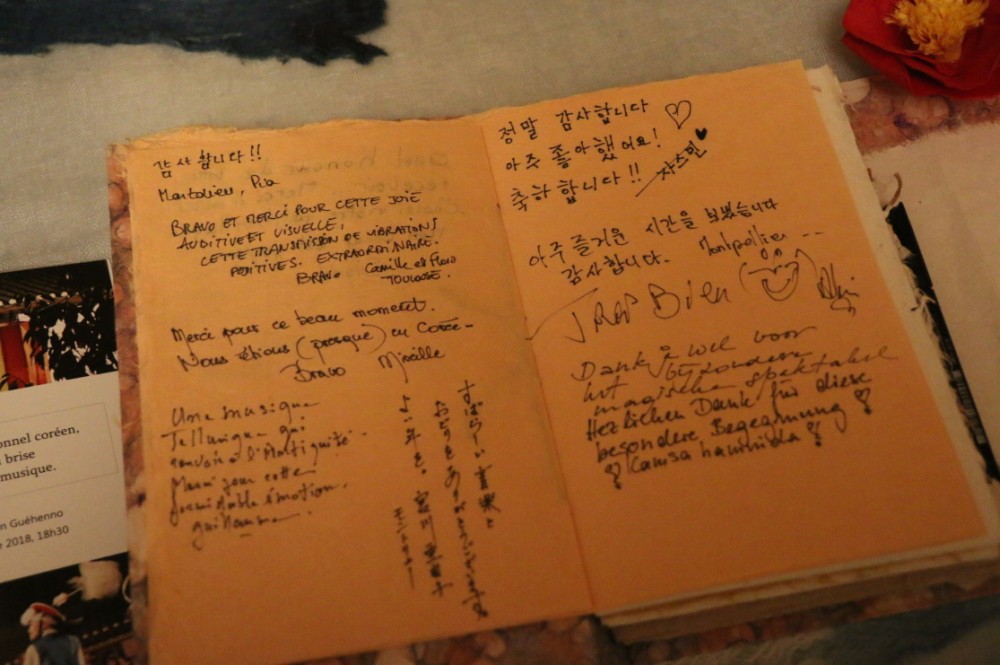 감사합니다!!
Pia
BRAVO ET MERCI POUR CETTE JOIE
AUDITIVE ET VISUELLE,
CETTE TRANSMISSION DE VIBRATIONS
POSITIVES. EXTRAORDINAIRE.
BRAVO Camille et Flora
TOULOUSE.
Merci pour ce beau moment.
Nous étions (presque) en Corée
Bravo Mireille
Une musique
Tellurique qui
renvoie à l'Antiquité.
Merci pour cette
formidable émotion.
guillaume
정말 감사합니다
아주 좋아했어요!
축하합니다!! 쟈스민
아주 즐거운 시간을 보냈습니다
감사합니다. Montpellier
Bien
Dank u wel voor
het bijzondere
magische spektakel
Herzlichen Dank für diese
besondere Begegnung
Camsa hamnida
onnel coréen,
brise
musique.
n Guéhenno
2018, 18h30